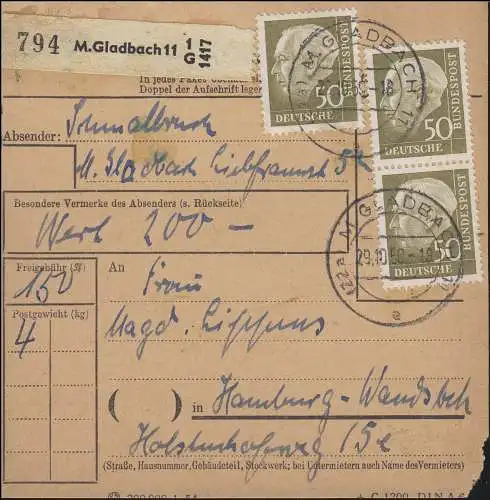 794 M.Gladbach 11 1 G 1417
50
DEUTSCHE BUNDESPOST
50
DEUTSCHE BUNDESPOST
50
DEUTSCHE BUNDESPOST
(22a) M. GLADBACH 11
-18
In jedes Paket
Doppel der Aufschrift legen
Absender: Schmalbruch
M. Gladbach Liebfrauenstr 54
Besondere Vermerke des Absenders (s. Rückseite)
Wert 200 —
(22a) M. GLADBA
29.10.60.-18
e
Freigebühr
150
An
Frau
Postgewicht (kg)
4
Magd.
( ) in Hamburg-Wandsbek
Holstenhofweg 15c
(Straße, Hausnummer, Gebäudeteil, Stockwerk; bei Untermietern auch Name des Vermieters)
C 1200 DIN A